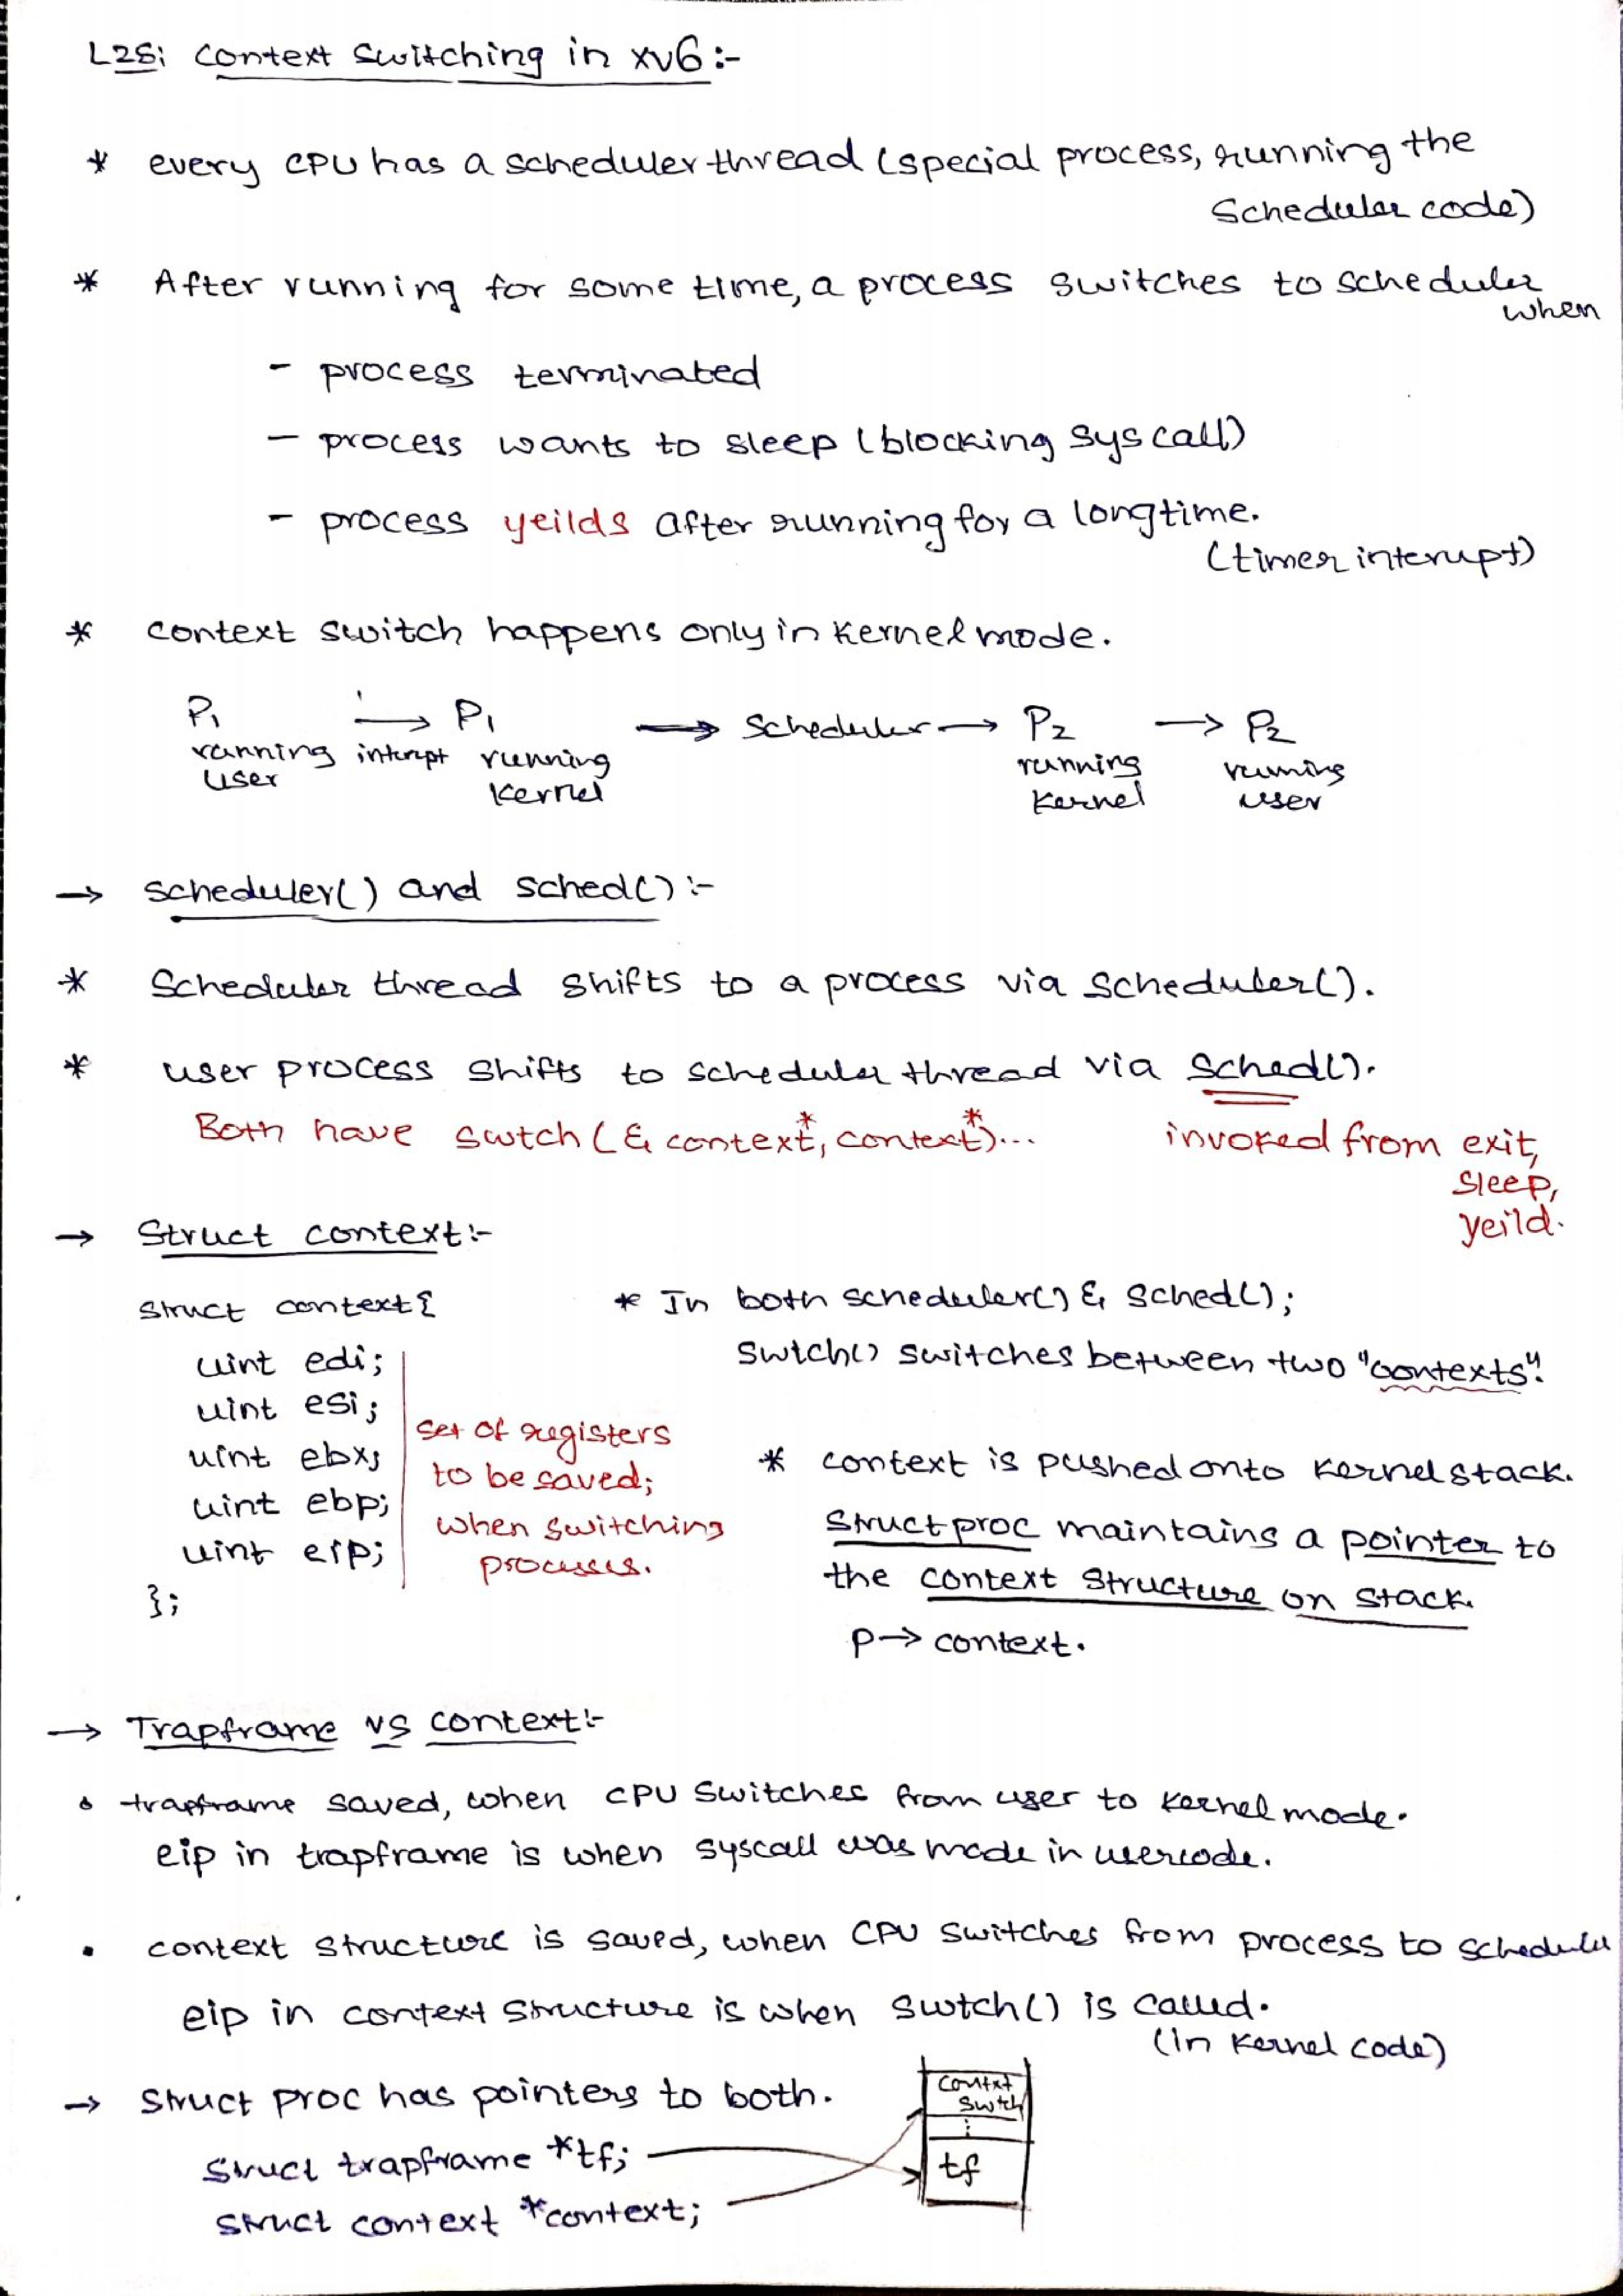 L25: Context Switching in xv6:-
* every CPU has a scheduler thread (special process, running the
scheduler code)
* After running for some time, a process switches to scheduler
when
- process terminated
- process wants to sleep (blocking syscall)
- process yeilds after running for a longtime.
(timer interupt)
* context switch happens only in kernel mode.
P1 → P1 → Scheduler → P2 → P2
running user interupt running kernel running kernel running user
→ scheduler() and sched() :-
* Scheduler thread shifts to a process via scheduler().
* user process shifts to scheduler thread via sched().
Both have swtch (& context*, context*)... invoked from exit,
sleep,
yeild.
→ Struct context:-
struct context{
uint edi;
uint esi;
uint ebx;
uint ebp;
uint eip;
};
set of registers
to be saved;
when switching
processes.
* In both scheduler() & sched();
swtch() switches between two "contexts".
* context is pushed onto kernel stack.
struct proc maintains a pointer to
the context structure on stack.
p→context.
→ Trapframe vs context:-
• trapframe saved, when CPU switches from user to kernel mode.
eip in trapframe is when syscall was made in usercode.
• context structure is saved, when CPU switches from process to scheduler
eip in context structure is when swtch() is called.
(in kernel code)
→ struct proc has pointers to both.
struct trapframe *tf;
struct context *context;
contxt
swtch
⋮
tf